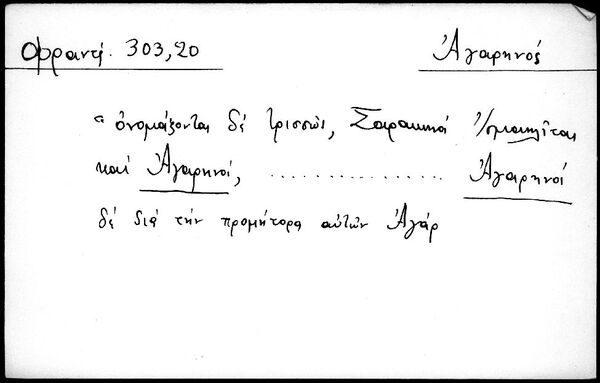 Φραντζ. 303,20 Ἀγαρηνός
"ὀνομάζονται δέ τρισσῶς, Σαρακηνοί Ἰσμαηλῖται
καί Ἀγαρηνοί, ................ Ἀγαρηνοί
δέ διά τήν προμήτορα αὐτῶν Ἀγάρ